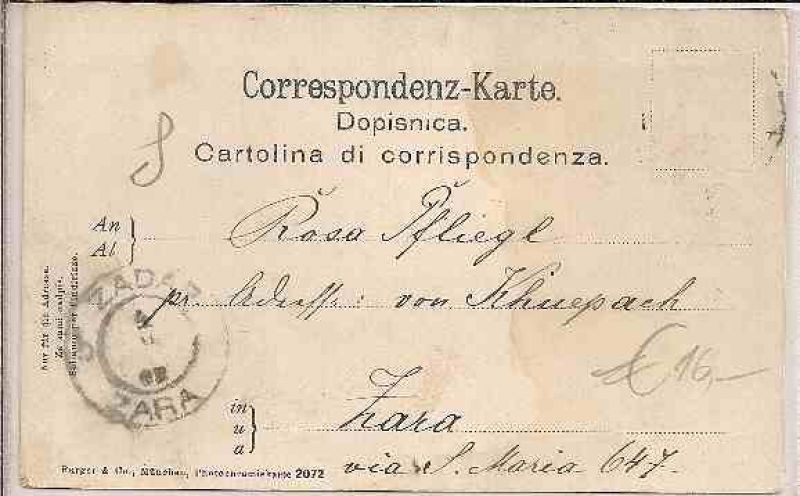 Correspondenz-Karte.
Dopisnica.
Cartolina di corrispondenza.
An
Al
Rosa Pfliegl
pr. Adresse: von Khuepach
in
u
a
Zara
via S. Maria 647.
Nur für die Adresse.
Za samu nadpis.
ZADAR
ZARA
€ 16,-
Purger & Co., München, Photochromiekarte 2072